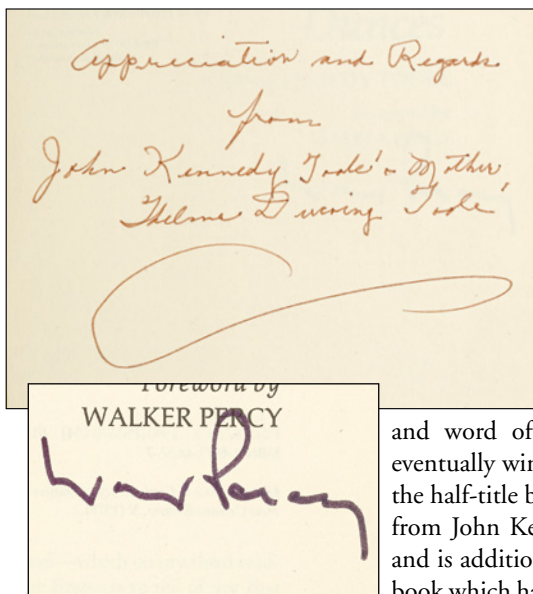 Appreciation and Regards
from
John Kennedy Toole's Mother,
Thelma Ducoing Toole
Foreword by
WALKER PERCY
Walker Percy
and word of
eventually win
the half-title b
from John Ke
and is addition
book which ha